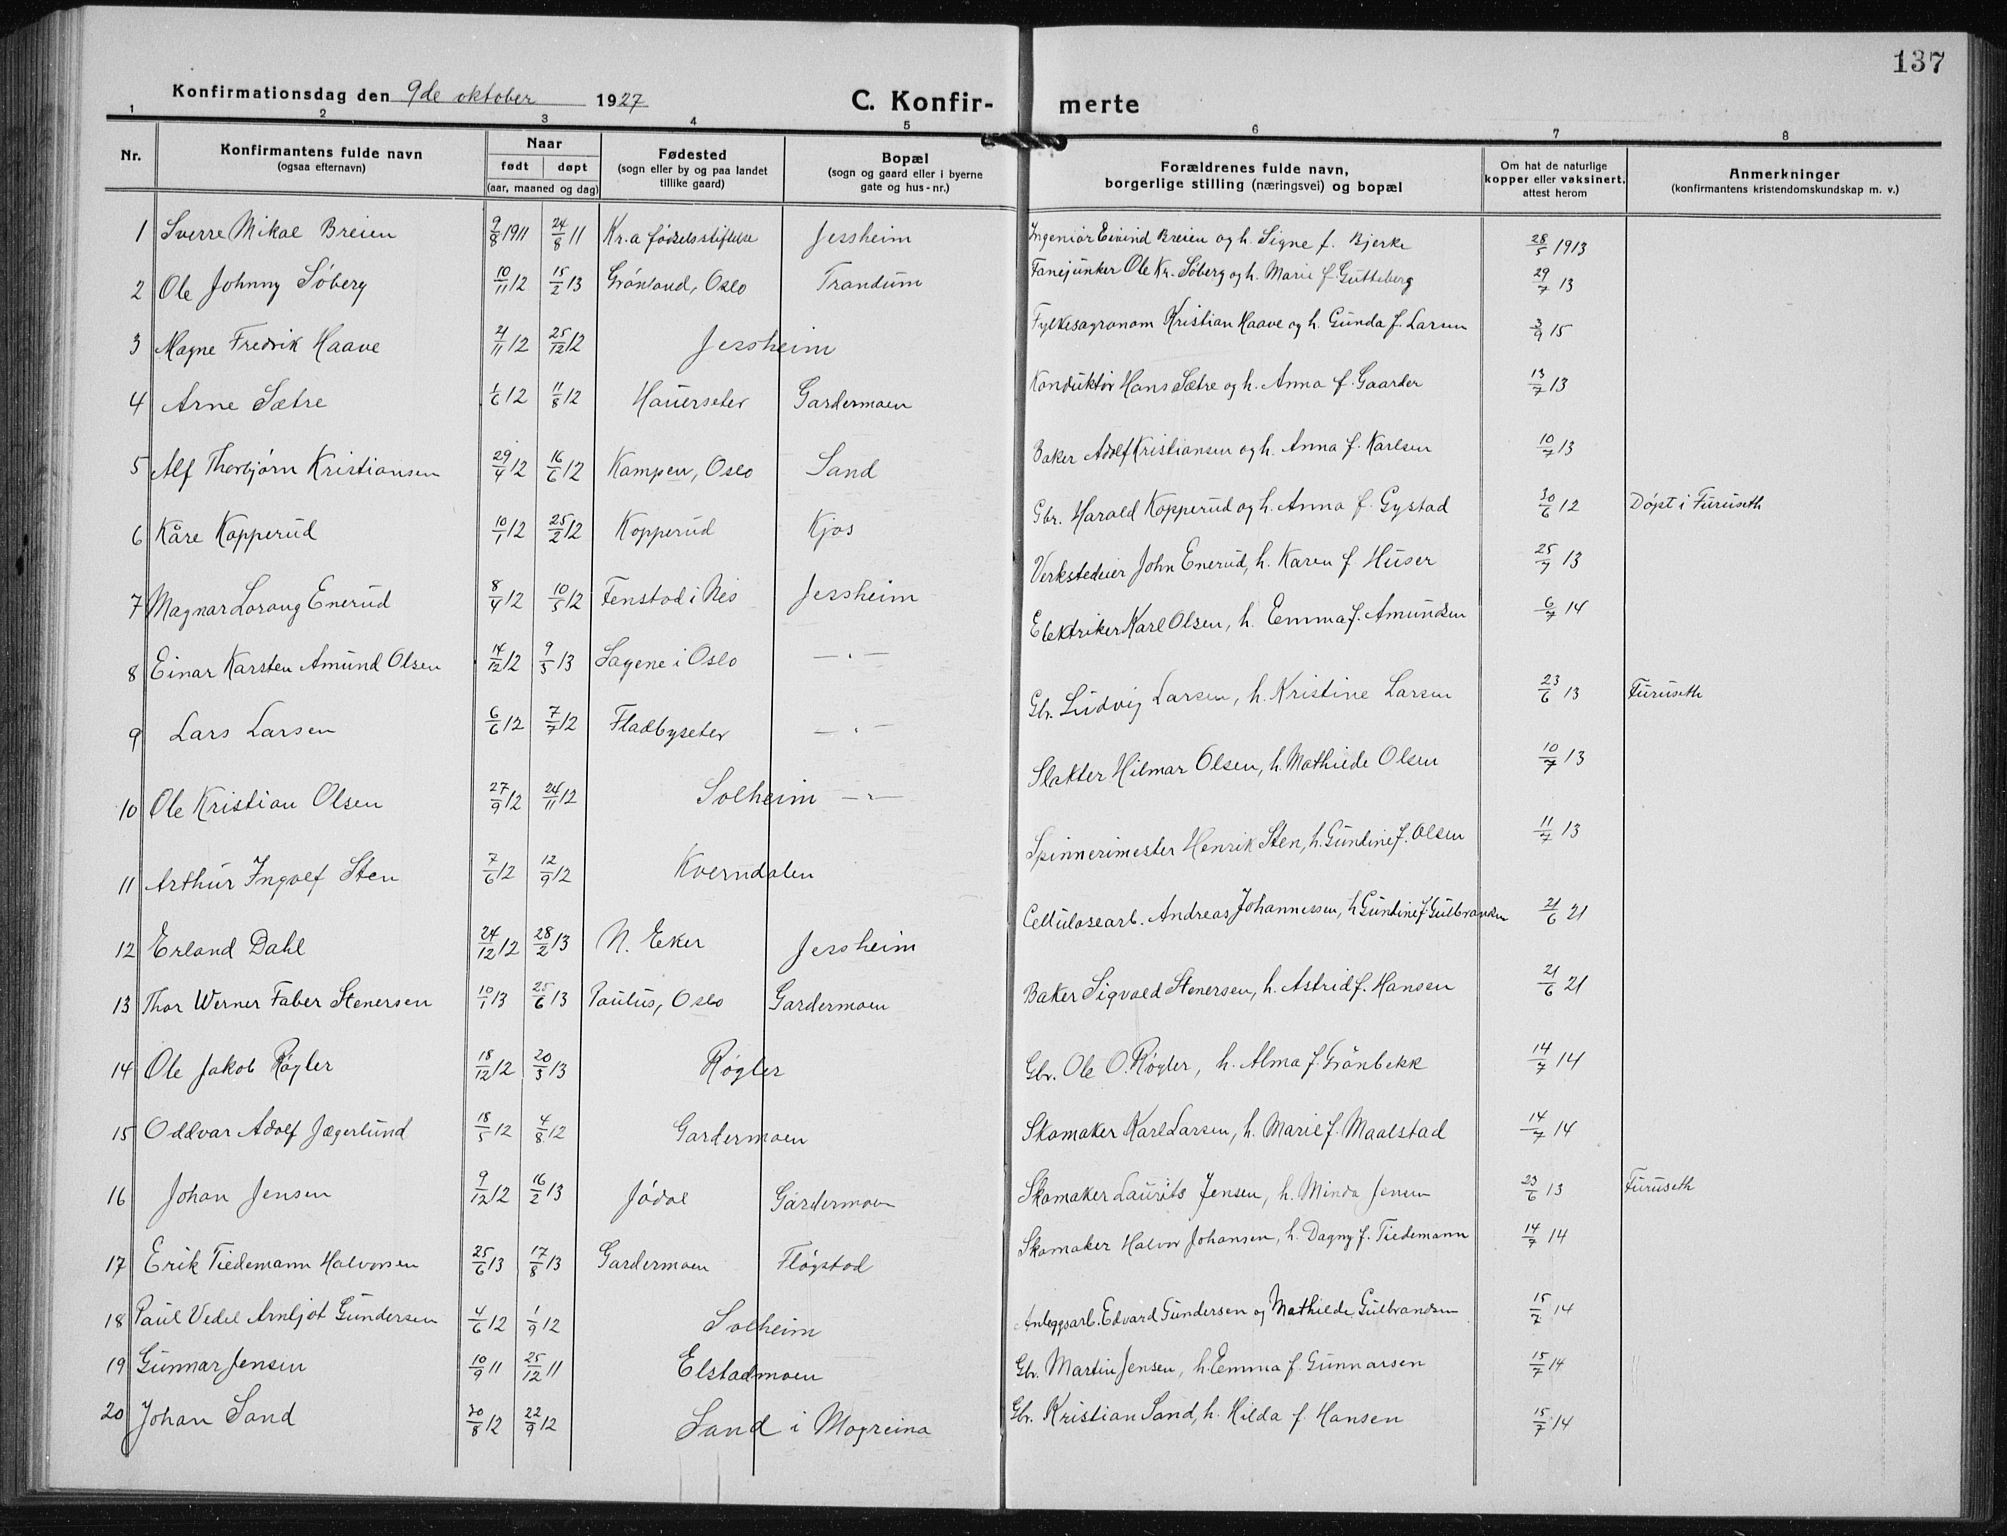 137
Konfirmationsdag den 9de oktober 1927 C. Konfir- merte
1 2 3 4 5 6 7 8
Nr. Konfirmantens fulde navn (ogsaa efternavn) Naar født døpt (aar, maaned og dag) Fødested (sogn eller by og paa landet tillike gaard) Bopæl (sogn og gaard eller i byerne gate og hus-nr.) Forældrenes fulde navn, borgerlige stilling (næringsvei) og bopæl Om hat de naturlige kopper eller vaksinert, attest herom Anmerkninger (konfirmantens kristendomskundskap m. v.)
1 Sverre Mikal Breien 9/8 1911 24/8 11 Kr.a fødselsstiftelse Jessheim Ingeniør Eivind Breien og h. Signe f. Bjerke 28/5 1913
2 Ole Johnny Søberg 10/11 12 15/2 13 Grønland, Oslo Trandum Fanejunker Ole Kr. Søberg og h. Marie f. Gutteberg 29/7 13
3 Magne Fredrik Haave 21/11 12 25/12 12 Jessheim Fylkesagronom Kristian Haave og h. Gunda f. Larsen 3/9 15
4 Arne Sætre 1/6 12 11/8 12 Hauerseter Gardermoen Konduktør Hans Sætre og h. Anna f. Gaarder 13/7 13
5 Alf Thorbjørn Kristiansen 29/4 12 16/6 12 Kampen, Oslo Sand Baker Adolf Kristiansen og h. Anna f. Karlsen 10/7 13
6 Kåre Kopperud 10/1 12 25/2 12 Kopperud Kjos Gbr. Harald Kopperud og h. Anna f. Gystad 30/6 12 Døpt i Furuseth
7 Magnar Lorang Enerud 8/4 12 10/5 12 Fenstad i Nes Jessheim Verkstedeier John Enerud, h. Karen f. Huser 25/7 13
8 Einar Karsten Amund Olsen 14/12 12 9/3 13 Sagene i Oslo — . — Elektriker Karl Olsen, h. Emma f. Amundsen 6/7 14
9 Lars Larsen 6/6 12 7/7 12 Fladbyseter — . — Gbr. Ludvig Larsen, h. Kristine Larsen 23/6 13 Furuseth
10 Ole Kristian Olsen 27/9 12 24/11 12 Solheim — . — Slakter Hilmar Olsen, h. Mathilde Olsen 10/7 13
11 Arthur Ingolf Sten 7/6 12 12/9 12 Kverndalen Spinnerimester Henrik Sten, h. Gundine f. Olsen 11/7 13
12 Erland Dahl 24/12 12 28/2 13 N. Eker Jessheim Cellulosearb. Andreas Johannessen, h Gundine f. Gulbrandsen 21/6 21
13 Thor Werner Faber Stenersen 10/1 13 25/6 13 Paulus, Oslo Gardermoen Baker Sigvald Stenersen, h. Astrid f. Hansen 21/6 21
14 Ole Jakob Røgler 18/12 12 20/3 13 Røgler Gbr. Ole O. Røgler, h. Alma f. Grønbekk 14/7 14
15 Oddvar Adolf Jægerlund 18/5 12 4/8 12 Gardermoen Skomaker Karl Larsen, h. Marie f. Maalstad 14/7 14
16 Johan Jensen 9/12 12 16/2 13 Jødal Gardermoen Skomaker Laurits Jensen, h. Minda Jensen 23/6 13 Furuseth
17 Erik Tiedemann Halvorsen 25/6 13 17/8 13 Gardermoen Fløgstad Skomaker Halvor Johansen, h. Dagny f. Tiedemann 14/7 14
18 Paul Vedel Arnljot Gundersen 4/6 12 1/9 12 Solheim Anleggsarb. Edvard Gundersen og Mathilde Gulbrandsen 15/7 14
19 Gunnar Jensen 10/9 11 25/12 11 Elstadmoen Gbr. Martin Jensen, h. Emma f. Gunnarsen 15/7 14
20 Johan Sand 20/8 12 22/9 12 Sand i Mogreina Gbr. Kristian Sand, h. Hilda f. Hansen 15/7 14